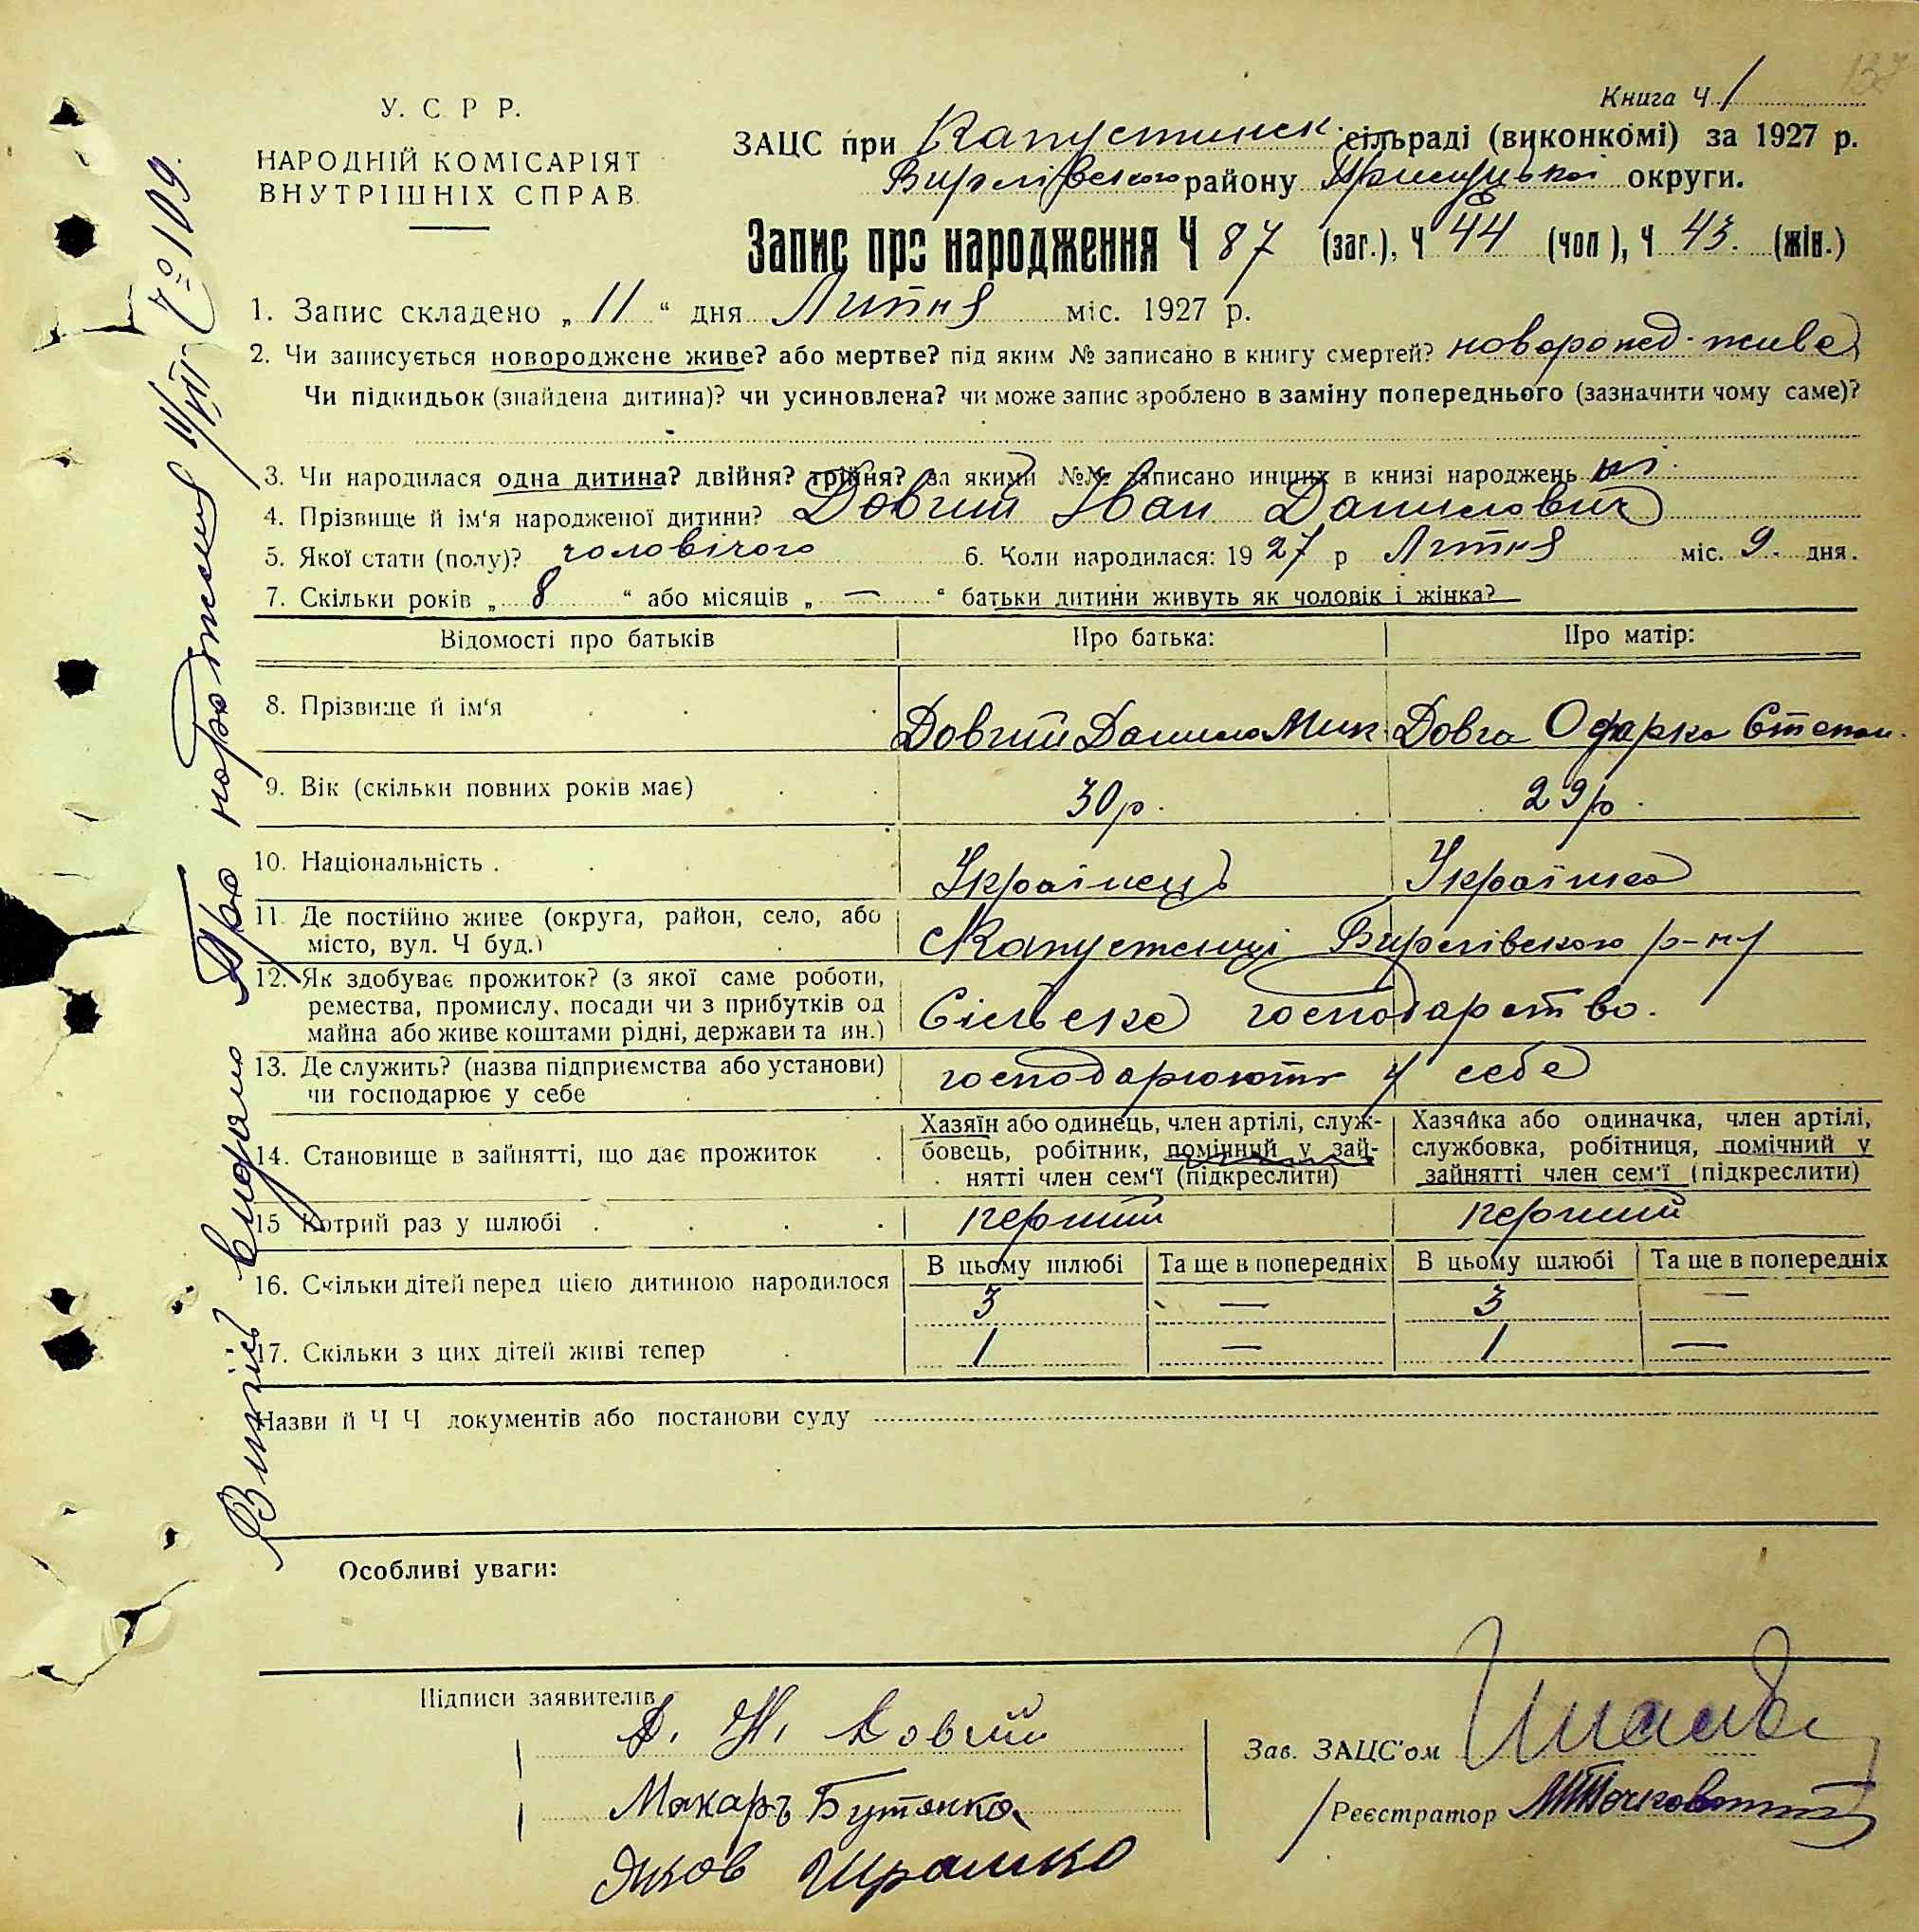 Книга Ч. 1
У. С. Р. Р.
НАРОДНІЙ КОМІСАРІЯТ
ВНУТРІШНІХ СПРАВ
ЗАЦС при Капустинск. сільраді (виконкомі) за 1927 р.
району Прилуцької округи.
Запис про народження Ч 87 (заг.), Ч 44 (чол), Ч 43. (жін.)
1. Запис складено „ 11 “ дня Липня міс. 1927 р.
2. Чи записується новороджене живе? або мертве? під яким № записано в книгу смертей? новорожед. живе
Чи підкидьок (знайдена дитина)? чи усиновлена? чи може запис зроблено в заміну попереднього (зазначити чому саме)?
3. Чи народилася одна дитина? двійня? трійня? за якими №№ записано инших в книзі народжень ні.
4. Прізвище й ім'я народженої дитини? Довгий Іван Данилович
5. Якої стати (полу)? чоловічого 6. Коли народилася: 1927 р Липня міс. 9. дня.
7. Скільки років „ 8 “ або місяців „ — “ батьки дитини живуть як чоловік і жінка?
Відомості про батьків Про батька: Про матір:
8. Прізвище й ім‘я . . . Довгий Данило Мик. Довга Одарка Степан.
9. Вік (скільки повних років має) . . 30 р. 29 р.
10. Національність . . . . Українець Українка
11. Де постійно живе (округа, район, село, або
місто, вул. Ч буд.) . Капустинці р-ну
12. Як здобуває прожиток? (з якої саме роботи,
ремества, промислу, посади чи з прибутків од
майна або живе коштами рідні, держави та ин.) Сільське господарство.
13. Де служить? (назва підприємства або установи)
чи господарює у себе . . господарюють у себе
14. Становище в зайнятті, що дає прожиток . Хазяїн або одинець, член артілі, служ-
бовець, робітник, помічний у зай-
нятті член сем'ї (підкреслити) Хазяйка або одиначка, член артілі,
службовка, робітниця, помічний у
зайнятті член сем'ї (підкреслити)
15 Котрий раз у шлюбі . . . . перший перший
В цьому шлюбі Та ще в попередніх В цьому шлюбі Та ще в попередніх
16. Скільки дітей перед цією дитиною народилося 3 — 3 —
17. Скільки з цих дітей живі тепер . 1 — 1 —
Назви й Ч Ч документів або постанови суду
Особливі уваги:
Підписи заявителів
Д. Н. Довгий
Макаръ Бутенко
Яков Шрамко
Зав. ЗАЦС'ом
Реєстратор
Випись видано Про народження 11/VII № 109.